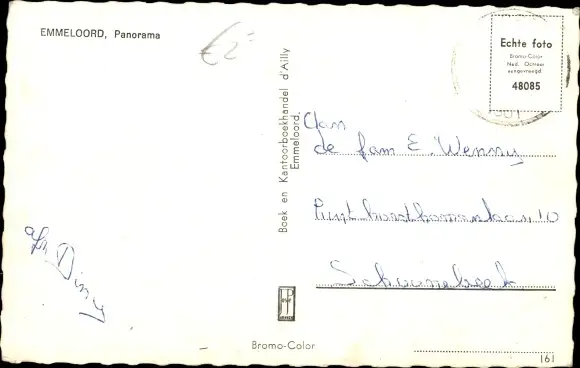 EMMELOORD, Panorama
€ 2,=
Echte foto
Bromo-Color
Ned. Octrooi
aangevraagd
48085
Boek en Kantoorboekhandel d'Ailly
Emmeloord.
Aan
de fam E. Wenny
10
Schoonebeek
afz Diny
JP
Bromo-Color
161